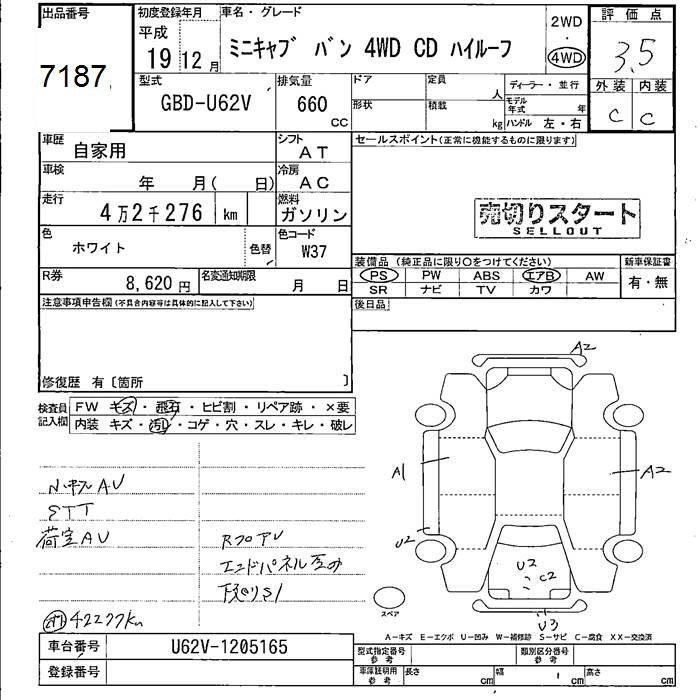 出品番号
7187
初度登録年月
平成
19 12 月
車名・グレード
ミニキャブ バン 4WD CD ハイルーフ
2WD
・
4WD
評価点
3.5
外装 内装
C C
型式
GBD-U62V
排気量
660
CC
ドア
形状
定員
人
積載
kg
ディーラー・並行
モデル年式 年
ハンドル 左・右
車歴
自家用
シフト
AT
車検
年 月( 日)
冷房
AC
走行
4万2千276 km
燃料
ガソリン
色
ホワイト
色替
色コード
W37
R券
8,620 円
名変通知期限
月 日
セールスポイント(正常に機能するものに限ります)
売切りスタート
SELLOUT
装備品 (純正品に限り〇をつけてください)
新車保証書
PS PW ABS エアB AW
有・無
SR ナビ TV カワ
後日品
注意事項申告欄 (不具合内容等は具体的に記入して下さい)
修復歴 有〔箇所 〕
検査員記入欄
FW キズ・飛石・ヒビ割・リペア跡・×要
内装 キズ・汚れ・コゲ・穴・スレ・キレ・破レ
AU
STT
荷室AU
RフロアU
エンドパネル
S1
42277km
A2
A1
A2
U2
U2
C2
U3
スペア
A-キズ E-エクボ U-凹み W-補修跡 S-サビ C-腐食 XX-交換済
車台番号
U62V-1205165
登録番号
型式指定番号
参考
類別区分番号
参考
車庫証明用
参考
長さ cm
幅 cm
高さ cm